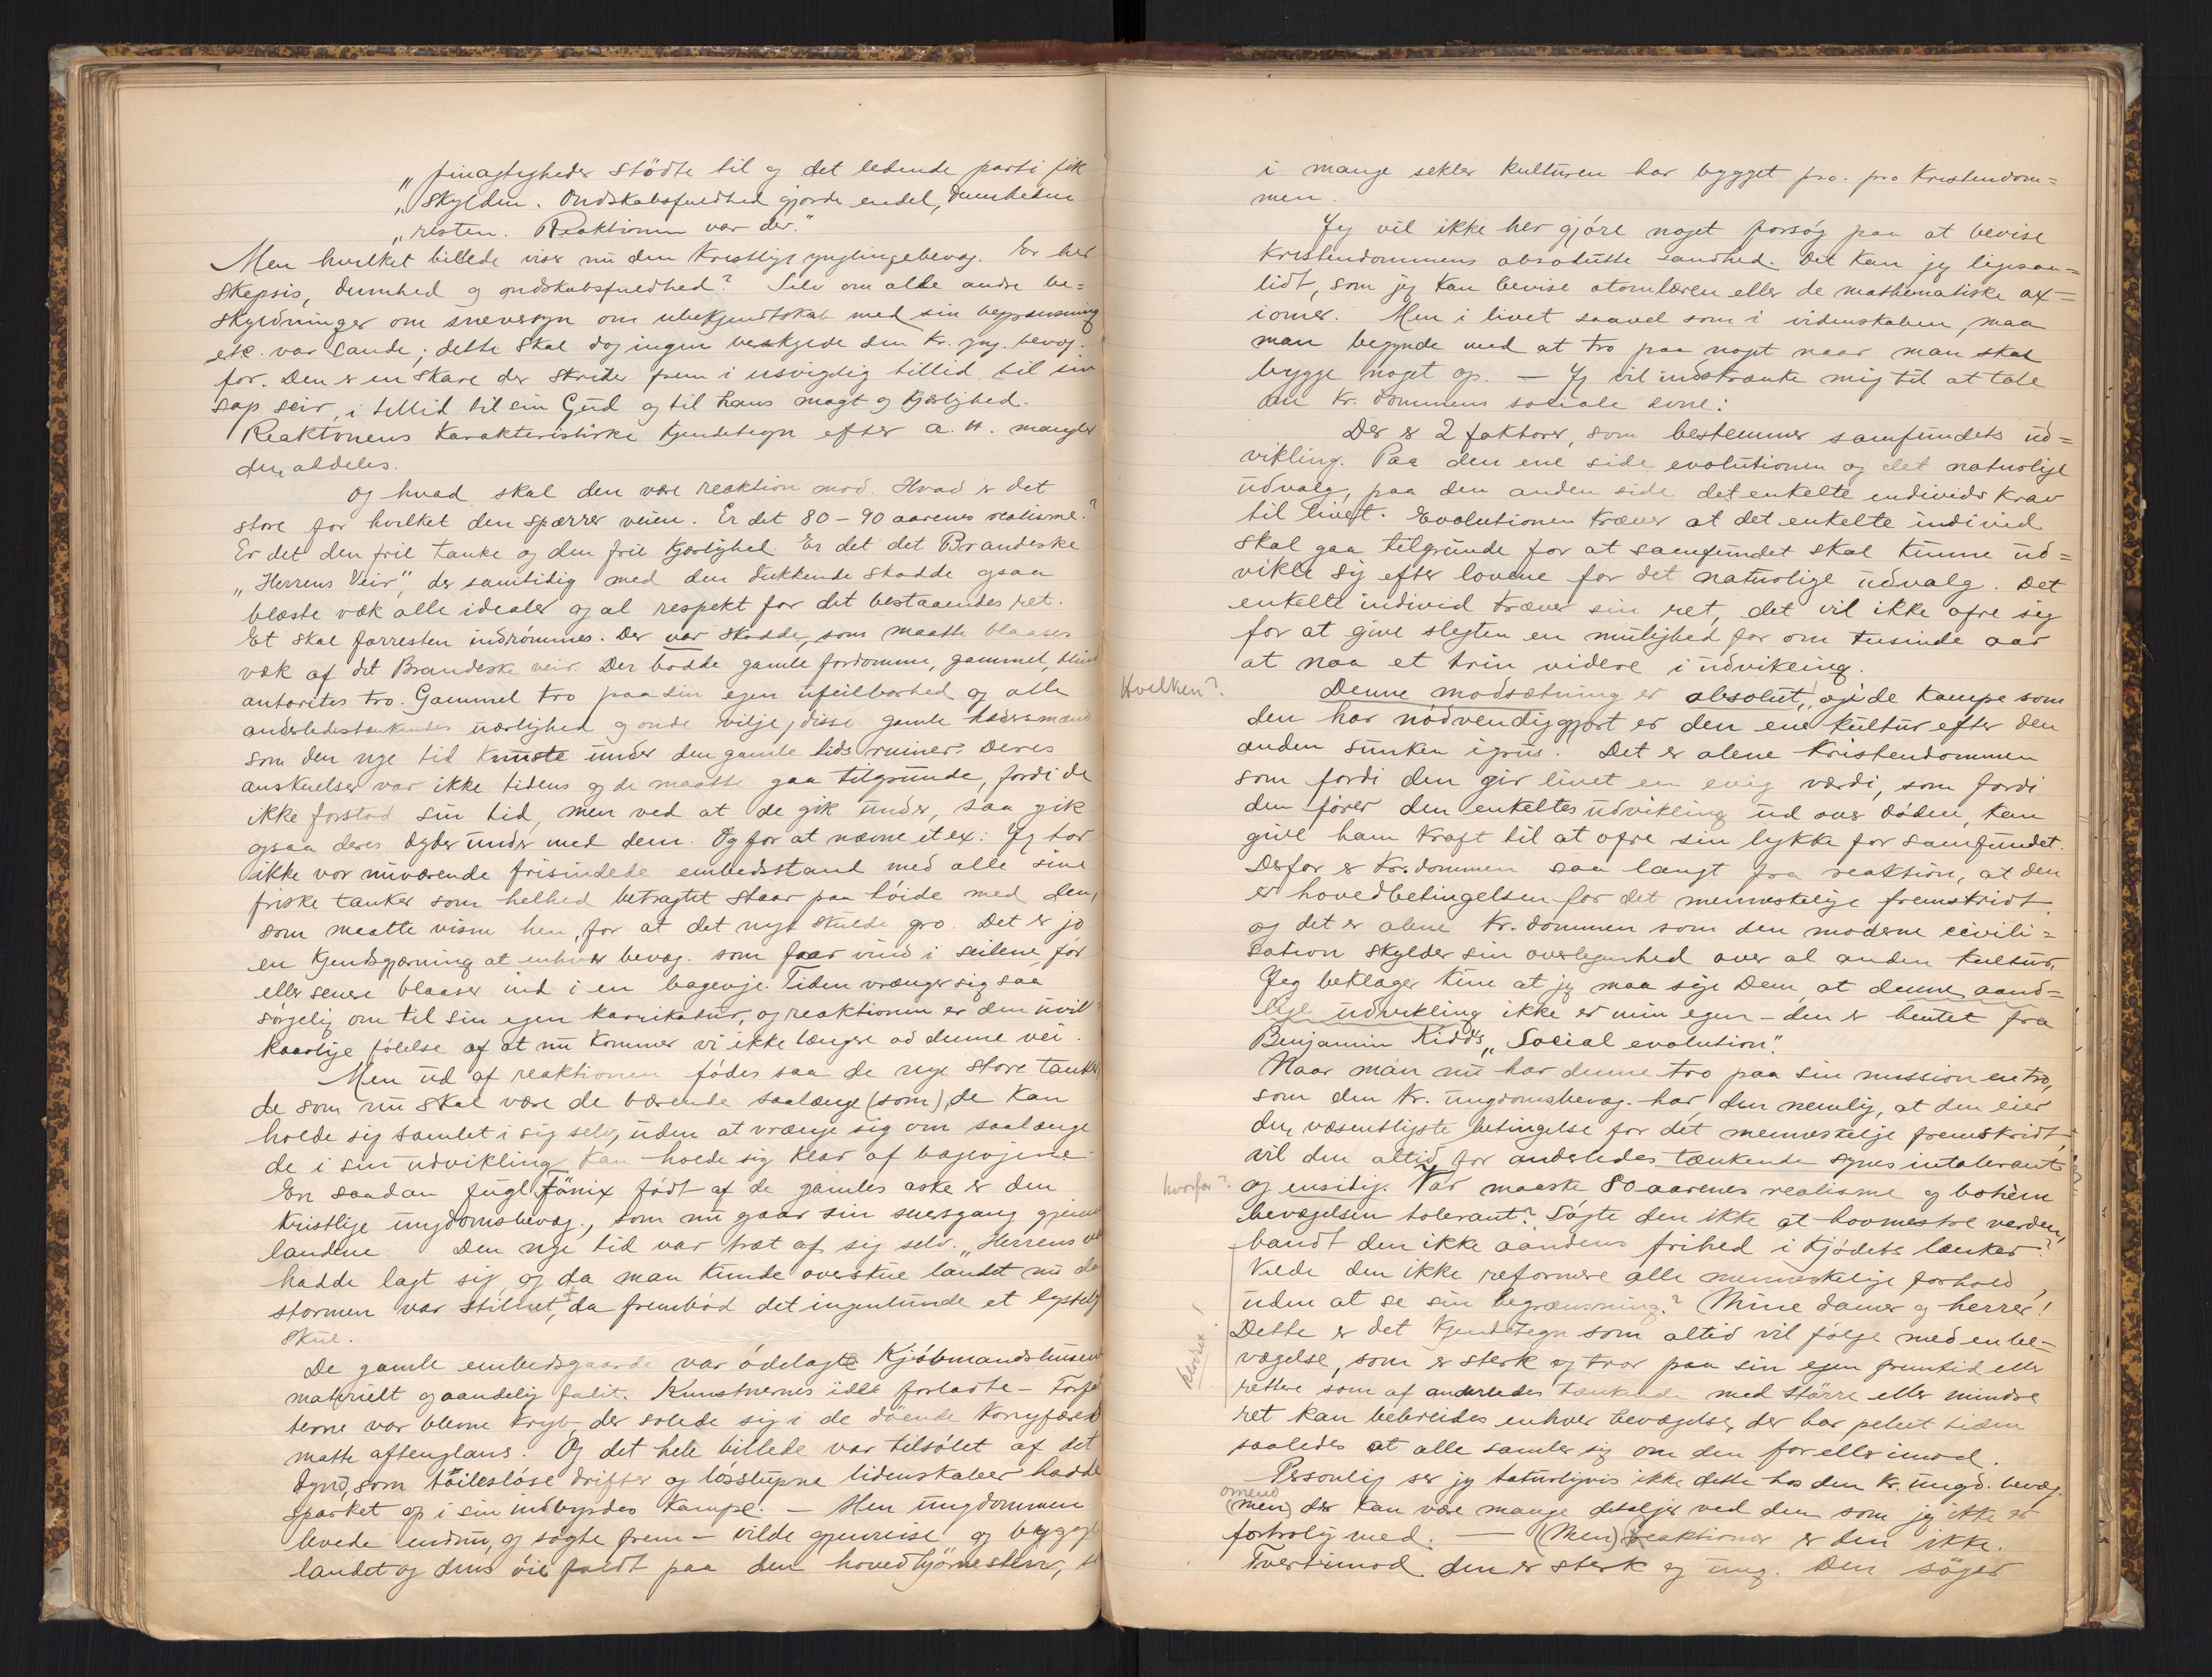 „finagtigheder stödte til og det ledende parti fik
„skylden. Ondskabsfuldhed gjorde endel, dumheden
„resten. Reaktionen var der."
Men hvilket billede viser nu den kristlige ynglingebevæg. Er her
skepsis, dumhed og ondskabsfuldhed? Selv om alle andre be=
skyldninger om sneversyn om ubekjendtskab med sin begrænsning
etc. var sande; dette skal dog ingen beskylde den kr. yng. bevæg.
for. Den er en skare der skrider frem i usvigelig tillid til sin
sags seir, i tillid til sin Gud og til hans magt og kjærlighed.
Reaktionens karakteristiske kjendetegn efter a. H. mangler
den aldeles.
Og hvad skal den være reaktion mod. Hvad er det
store for hvilket den spærrer veien. Er det 80-90 aarenes realisme?
Er det den frie tanke og den frie kjærlighed. Er det det Brandeske
„Herrens Veir", der samtidig med den dukkende skodde ogsaa
blæste væk alle idealer og al respekt for det bestaaendes ret.
Et skal forresten indrømmes. Der var skodde, som maatte blaases
væk af det Brandeske veir. Der bodde gamle fordomme, gammel, blind
autoritets tro. Gammel tro paa sin egen ufeilbarhed og alle
anderledestænkendes uærlighed og onde vilje, disse gamle hædersmænd
som den nye tid knuste under den gamle tids ruiner. Deres
anskuelser var ikke tidens og de maatte gaa tilgrunde, fordi de
ikke forstod sin tid, men ved at de gik under, saa gik
ogsaa deres dyder under med dem. Og for at nævne et ex: Jeg tror
ikke vor nuværende frisindede embedsstand med alle sine
friske tanker som helhed betragtet staar paa höide med den,
som maatte visne hen, for at det nye skulde gro. Det er jo
en kjendsgjerning at enhver bevæg. som faar vind i seilene för
eller senere blaaser ind i en bagevje. Tiden vrænger sig saa
sörgelig om til sin egen karrikatur, og reaktionen er den uvil=
kaarlige fölelse af at nu kommer vi ikke længere ad denne vei.
Men ud af reaktionen födes saa de nye store tanker
de som nu skal være de bærende saalænge (som) de kan
holde sig samlet i sig selv, uden at vrænge sig om saalænge
de i sin udvikling kan holde sig klar af bagevjerne
En saadan fugl Fönix födt af de gamles aske er den
kristlige ungdomsbevæg., som nu gaar sin seiersgang gjennem
landene. Den nye tid var træt af sig selv. „Herrens veir
hadde lagt sig og da man kunde overskue landet nu da
stormen var stilnet, da frembød det ingenlunde et lystelig
skue.
De gamle embedsgaarde var ödelagte Kjöbmandshusene
materielt og aandelig falit. Kunstnernes idle forladte - Forfat
terne var blevne kryb, der solede sig i de döende
matte aftenglans. Og det hele billede var tilsölet af det
dynd, som töileslöse drifter og lösslupne lidenskaber hadde
sparket op i sin indbyrdes kampe. - Men ungdommen
levede endnu, og sögte frem - vilde gjenreise og bygge
landet og dens öie faldt paa den hovedhjörnesten,
i mange sekler kulturen har bygget paa. paa Kristendom=
men.
Jeg vil ikke her gjöre noget forsög paa at bevise
kristendommens absolutte sandhed. Det kan jeg ligesaa=
lidt, som jeg kan bevise atomlæren eller de mathematiske ax=
iomer. Men i livet saavel som i videnskaben, maa
man begynde med at tro paa noget naar man skal
bygge noget op. — Jeg vil indskrænke mig til at tale
om Kr. dommens sociale evne:
Der er 2 faktorer, som bestemmer samfundets ud=
vikling. Paa den ene side evolutionen og det naturlige
udvalg, paa den anden side det enkelte individs krav
til livet. Evolutionen kræver at det enkelte individ
skal gaa tilgrunde for at samfundet skal kunne ud=
vikle sig efter lovene for det naturlige udvalg. Det
enkelte individ kræver sin ret, det vil ikke ofre sig
for at give slegten en mulighed for om tusinde aar
at naa et trin videre i udvikling.
Hvilken?
Denne modsætning er absolut, og i de kampe som
den har nödvendiggjort er den ene kultur efter den
anden sunken i grus. Det er alene Kristendommen
som fordi den gir livet en evig værdi, som fordi
den förer den enkeltes udvikling ud over döden, kan
give ham kraft til at ofre sin lykke for samfundet.
Derfor er Kr.dommen saa langt fra reaktion, at den
er hovedbetingelsen for det menneskelige fremskridt,
og det er alene Kr. dommen som den moderne civili=
sation skylder sin overlegenhed over al anden kultur.
Jeg beklager kun at jeg maa sige Dem, at denne aand=
lige udvikling ikke er min egen - den er hentet fra
Benjamin Kidds „Social evolution".
Naar man nu har denne tro paa sin mission en tro,
som den Kr. ungdomsbevæg. har, den nemlig, at den eier
den væsentligste betingelse for det menneskelige fremskridt,
vil den altid for anderledes tænkende synes intolerant
hvorfor?
og ensidig. Var maaske 80 aarenes realisme og bohèm
bevægelsen tolerant? Sögte den ikke at hovmestre verden,
bandt den ikke aandens frihed i kjödets lænker?
Vilde den ikke reformere alle menneskelige forhold,
uden at se sin begrænsning? Mine damer og herrer!
Dette er det kjendetegn som altid vil fölge med en be=
vægelse, som er sterk og tror paa sin egen fremtid eller
rettere som af anderledes tænkende med större eller mindre
ret kan bebreides enhver bevægelse, der har præget tiden
saaledes at alle samler sig om den for eller imod.
Personlig ser jeg naturligvis ikke dette hos den kr. ungd. bevæg.
omend
(men) der kan være mange detaljer ved den som jeg ikke er
fortrolig med. — (Men) reaktionær er den ikke.
Tvertimod den er sterk og ung. Den söger